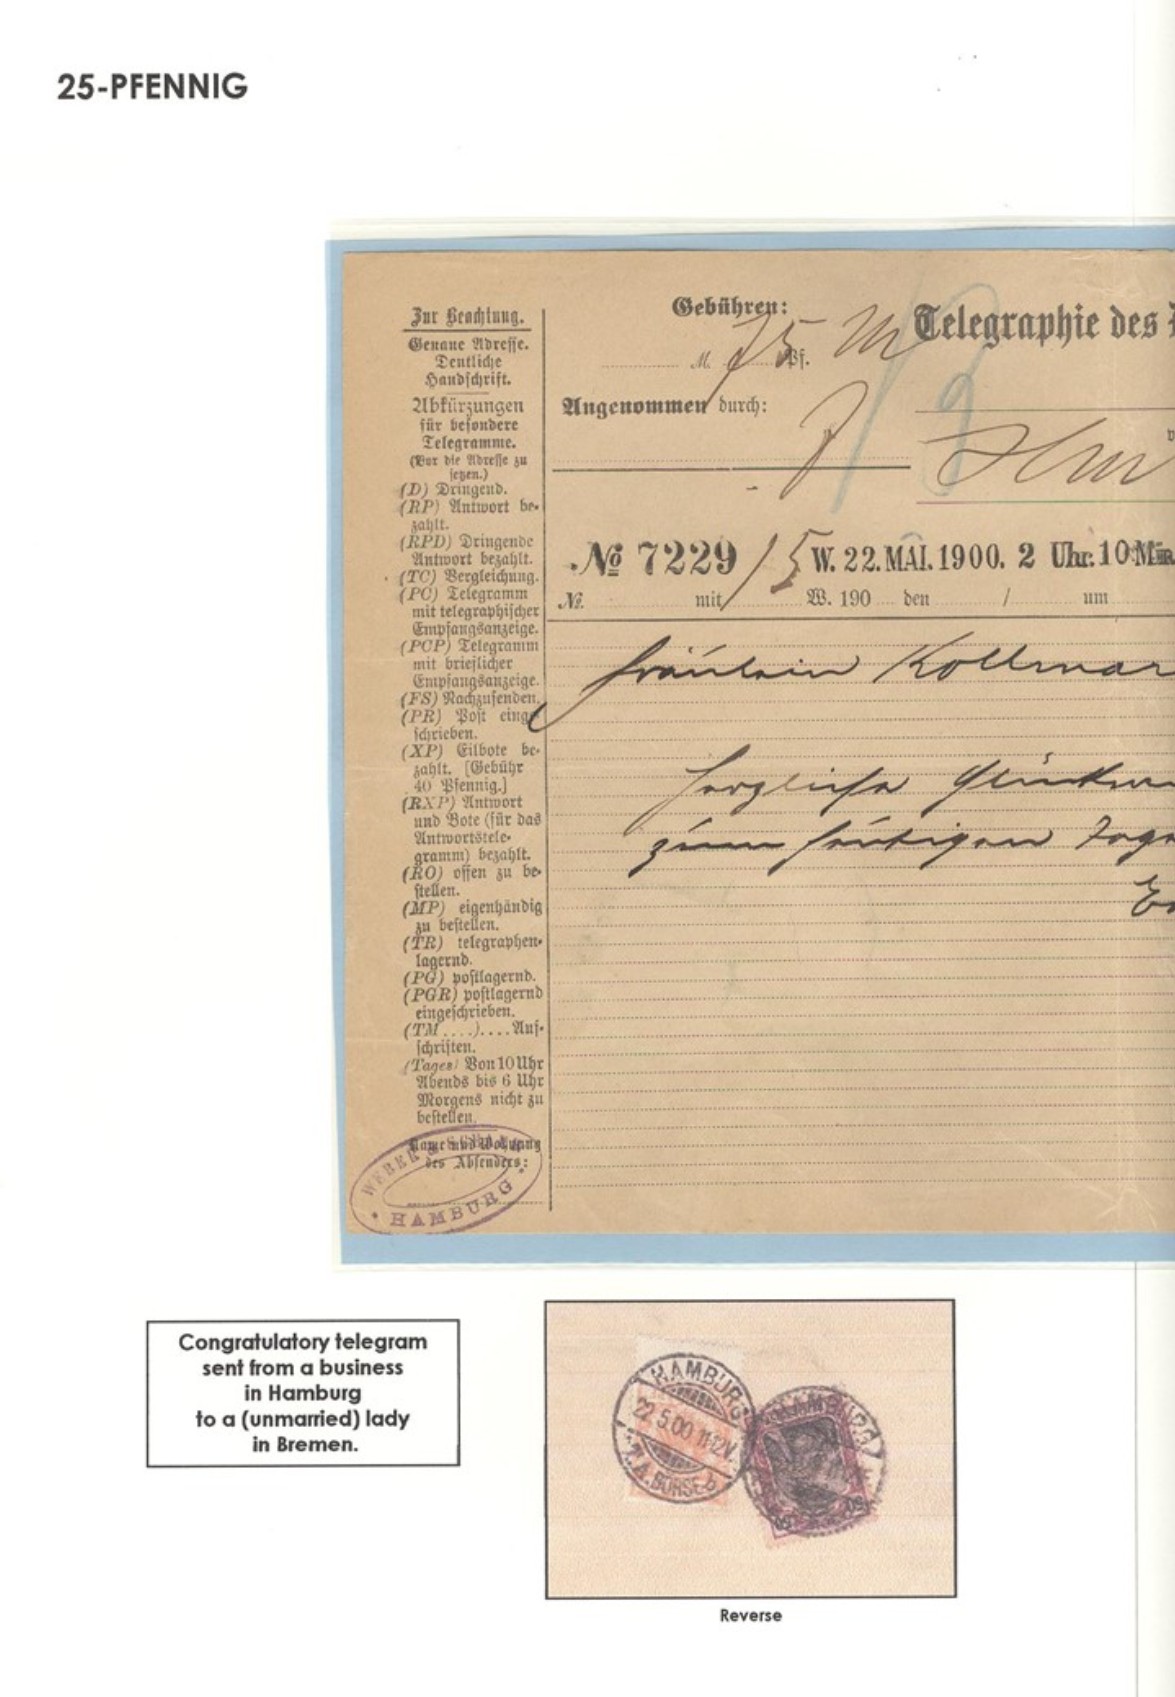 25-PFENNIG
Zur Beachtung.
Genaue Adresse.
Deutliche
Handschrift.
Abkürzungen
für besondere
Telegramme.
(Vor die Adresse zu
setzen.)
(D) Dringend.
(RP) Antwort be-
zahlt.
(RPD) Dringende
Antwort bezahlt.
(TC) Vergleichung.
(PC) Telegramm
mit telegraphischer
Empfangsanzeige.
(PCP) Telegramm
mit brieflicher
Empfangsanzeige.
(FS) Nachzusenden.
(PR) Post einge-
schrieben.
(XP) Eilbote be-
zahlt. [Gebühr
40 Pfennig.]
(RXP) Antwort
und Bote (für das
Antwortstele-
gramm) bezahlt.
(RO) offen zu be-
stellen.
(MP) eigenhändig
zu bestellen.
(TR) telegraphen-
lagernd.
(PG) postlagernd.
(PGR) postlagernd
eingeschrieben.
(TM....)....Auf-
schriften.
(Tages) Von 10 Uhr
Abends bis 6 Uhr
Morgens nicht zu
bestellen.
Name und Wohnung
des Absenders:
WEBER
HAMBURG
Gebühren:
M. 75 Pf.
Telegraphie des
Angenommen durch:
№ 7229 15 W. 22. MAI. 1900. 2 Uhr. 10 Min.
№ mit W. 190 den / um
Fräulein Kollmar
Herzliche Glückw
zum heutigen Tage
Congratulatory telegram
sent from a business
in Hamburg
to a (unmarried) lady
in Bremen.
HAMBURG
22 5.00 11-12V.
T.A. BÖRSE b
HAMBURG
50
Reverse